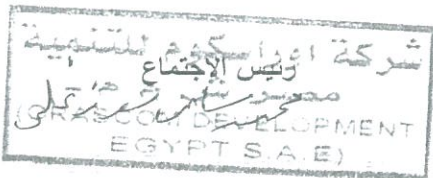 شركة اوراسكوم للتنمية
رئيس الإجتماع
مصر ش
(ORASCOM DEVELOPMENT
EGYPT S.A.E)